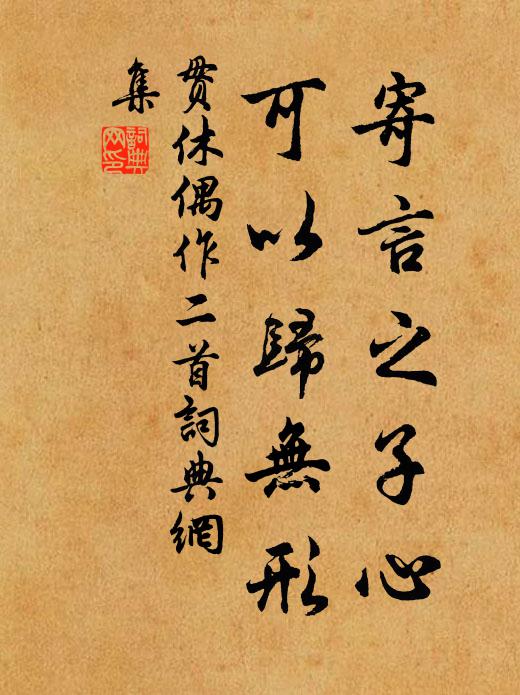 寄言之子心
可以歸無形
貫休偶作二首詞典網
集
詞典
网印